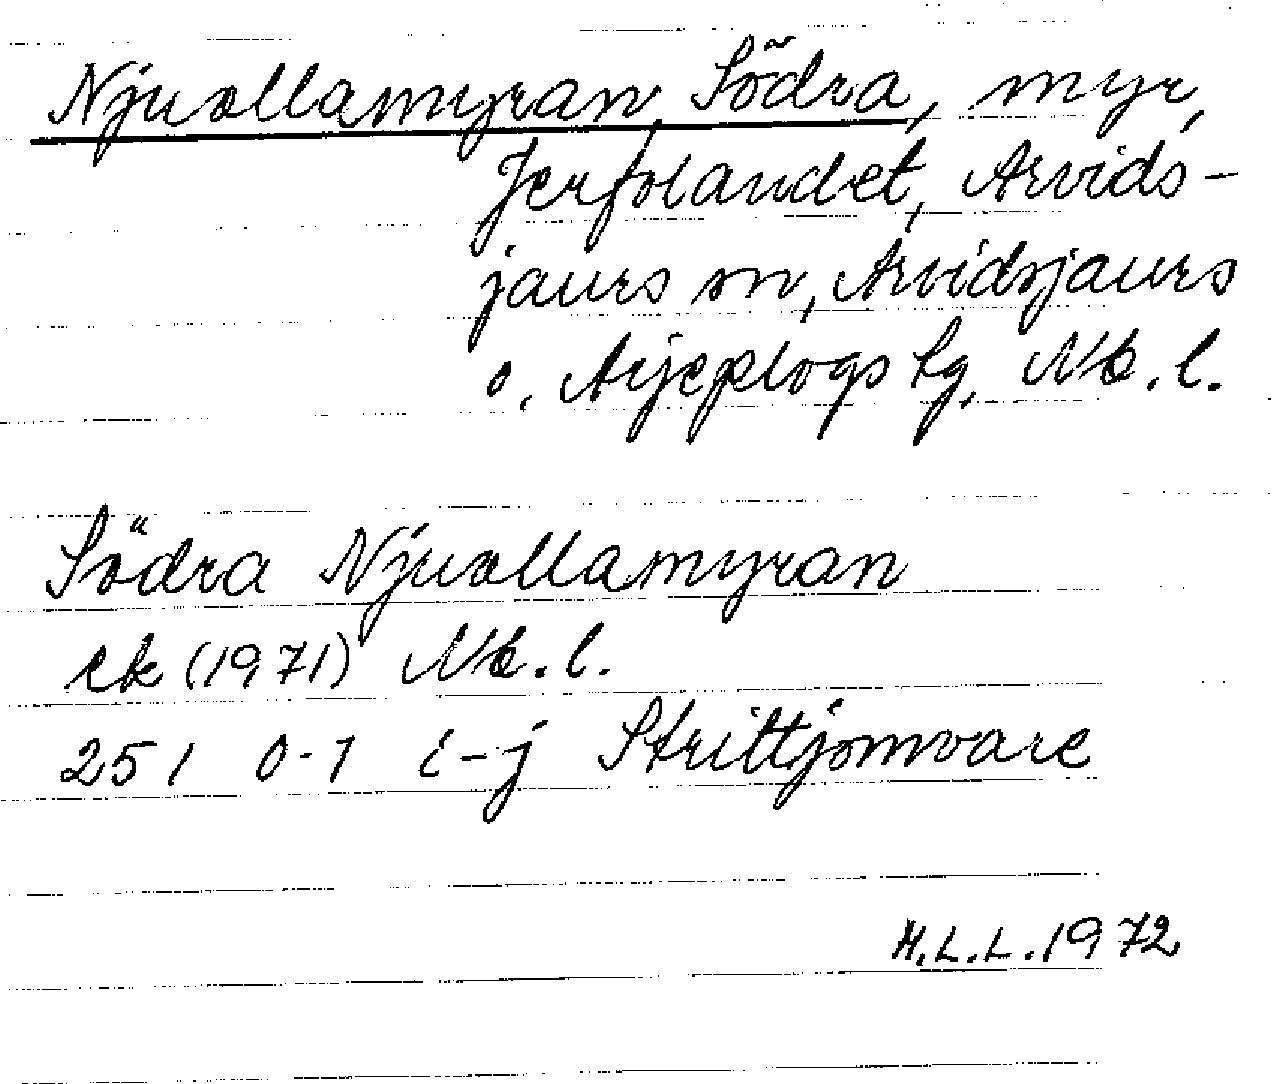 Njuollamyran, Södra, myr,
Jerfolandet, Arvids-
jaurs sn, Arvidsjaurs
o. Arjeplogs tg, Nb. l.
Södra Njuollamyran
ek (1971) Nb. l.
25 I 0-1 i-j Strittjomvare
M.L.L. 1972